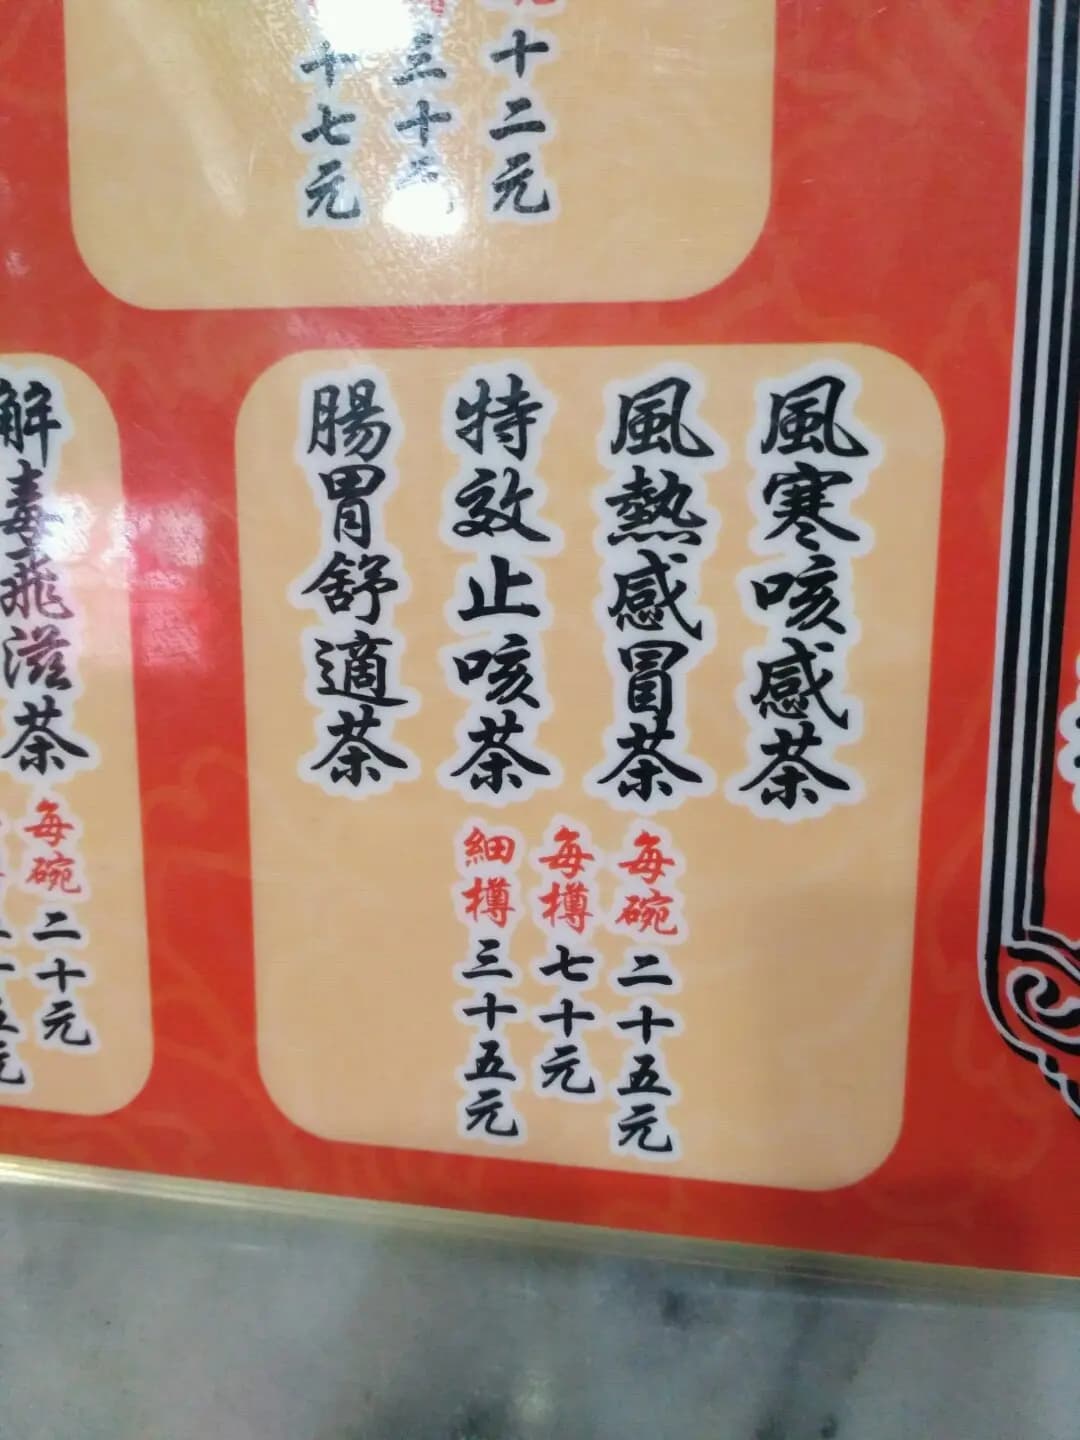 十二元
三十
十七元
風寒咳感茶
風熱感冒茶
特效止咳茶
腸胃舒適茶
每碗二十五元
每樽七十元
細樽三十五元
解毒飛滋茶
每碗二十元